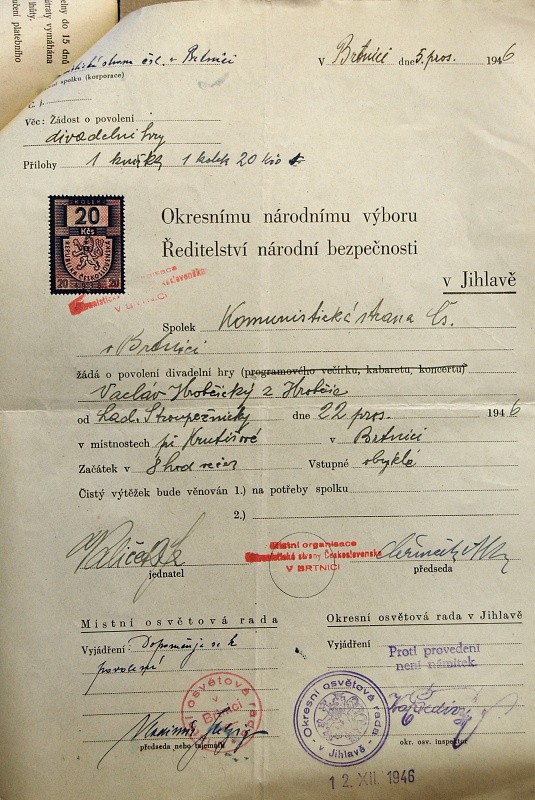 elny do 15 dnů
atraty vymáhána
lhůty.
čení platebního
strana čsl. v Brtnici
spolku (korporace)
V Brtnici dne 5. pros. 1946
Č. j.
Věc: Žádost o povolení
divadelní hry
Přílohy 1 knížka 1 kolek 20 Kčs
KOLEK
20
Kčs
REPUBLIKA ČESKOSLOVENSKÁ
20 20
Okresnímu národnímu výboru
Ředitelství národní bezpečnosti
v Jihlavě
V BRTNICI
Spolek Komunistická strana Čs.
v Brtnici
žádá o povolení divadelní hry (programového večírku, kabaretu, koncertu)
Vacláv Hrobčický z Hrobčic
od Lad. Stroupežnický dne 22 pros. 1946
v místnostech při Krutišové v Brtnici
Začátek v 8 hod večer Vstupné obyklé
Čistý výtěžek bude věnován 1.) na potřeby spolku
2.)
Místní organisace
Komunistické strany Československa
V BRTNICI
jednatel
předseda
Místní osvětová rada
Okresní osvětová rada v Jihlavě
Vyjádření: Doporučuje se k
povolení
Vyjádření
Proti provedení
není námitek.
Místní osvětová rada
v
Brtnici
Okresní osvětová rada
v Jihlavě
předseda nebo tajemník
okr. osv. inspektor
12. XII. 1946